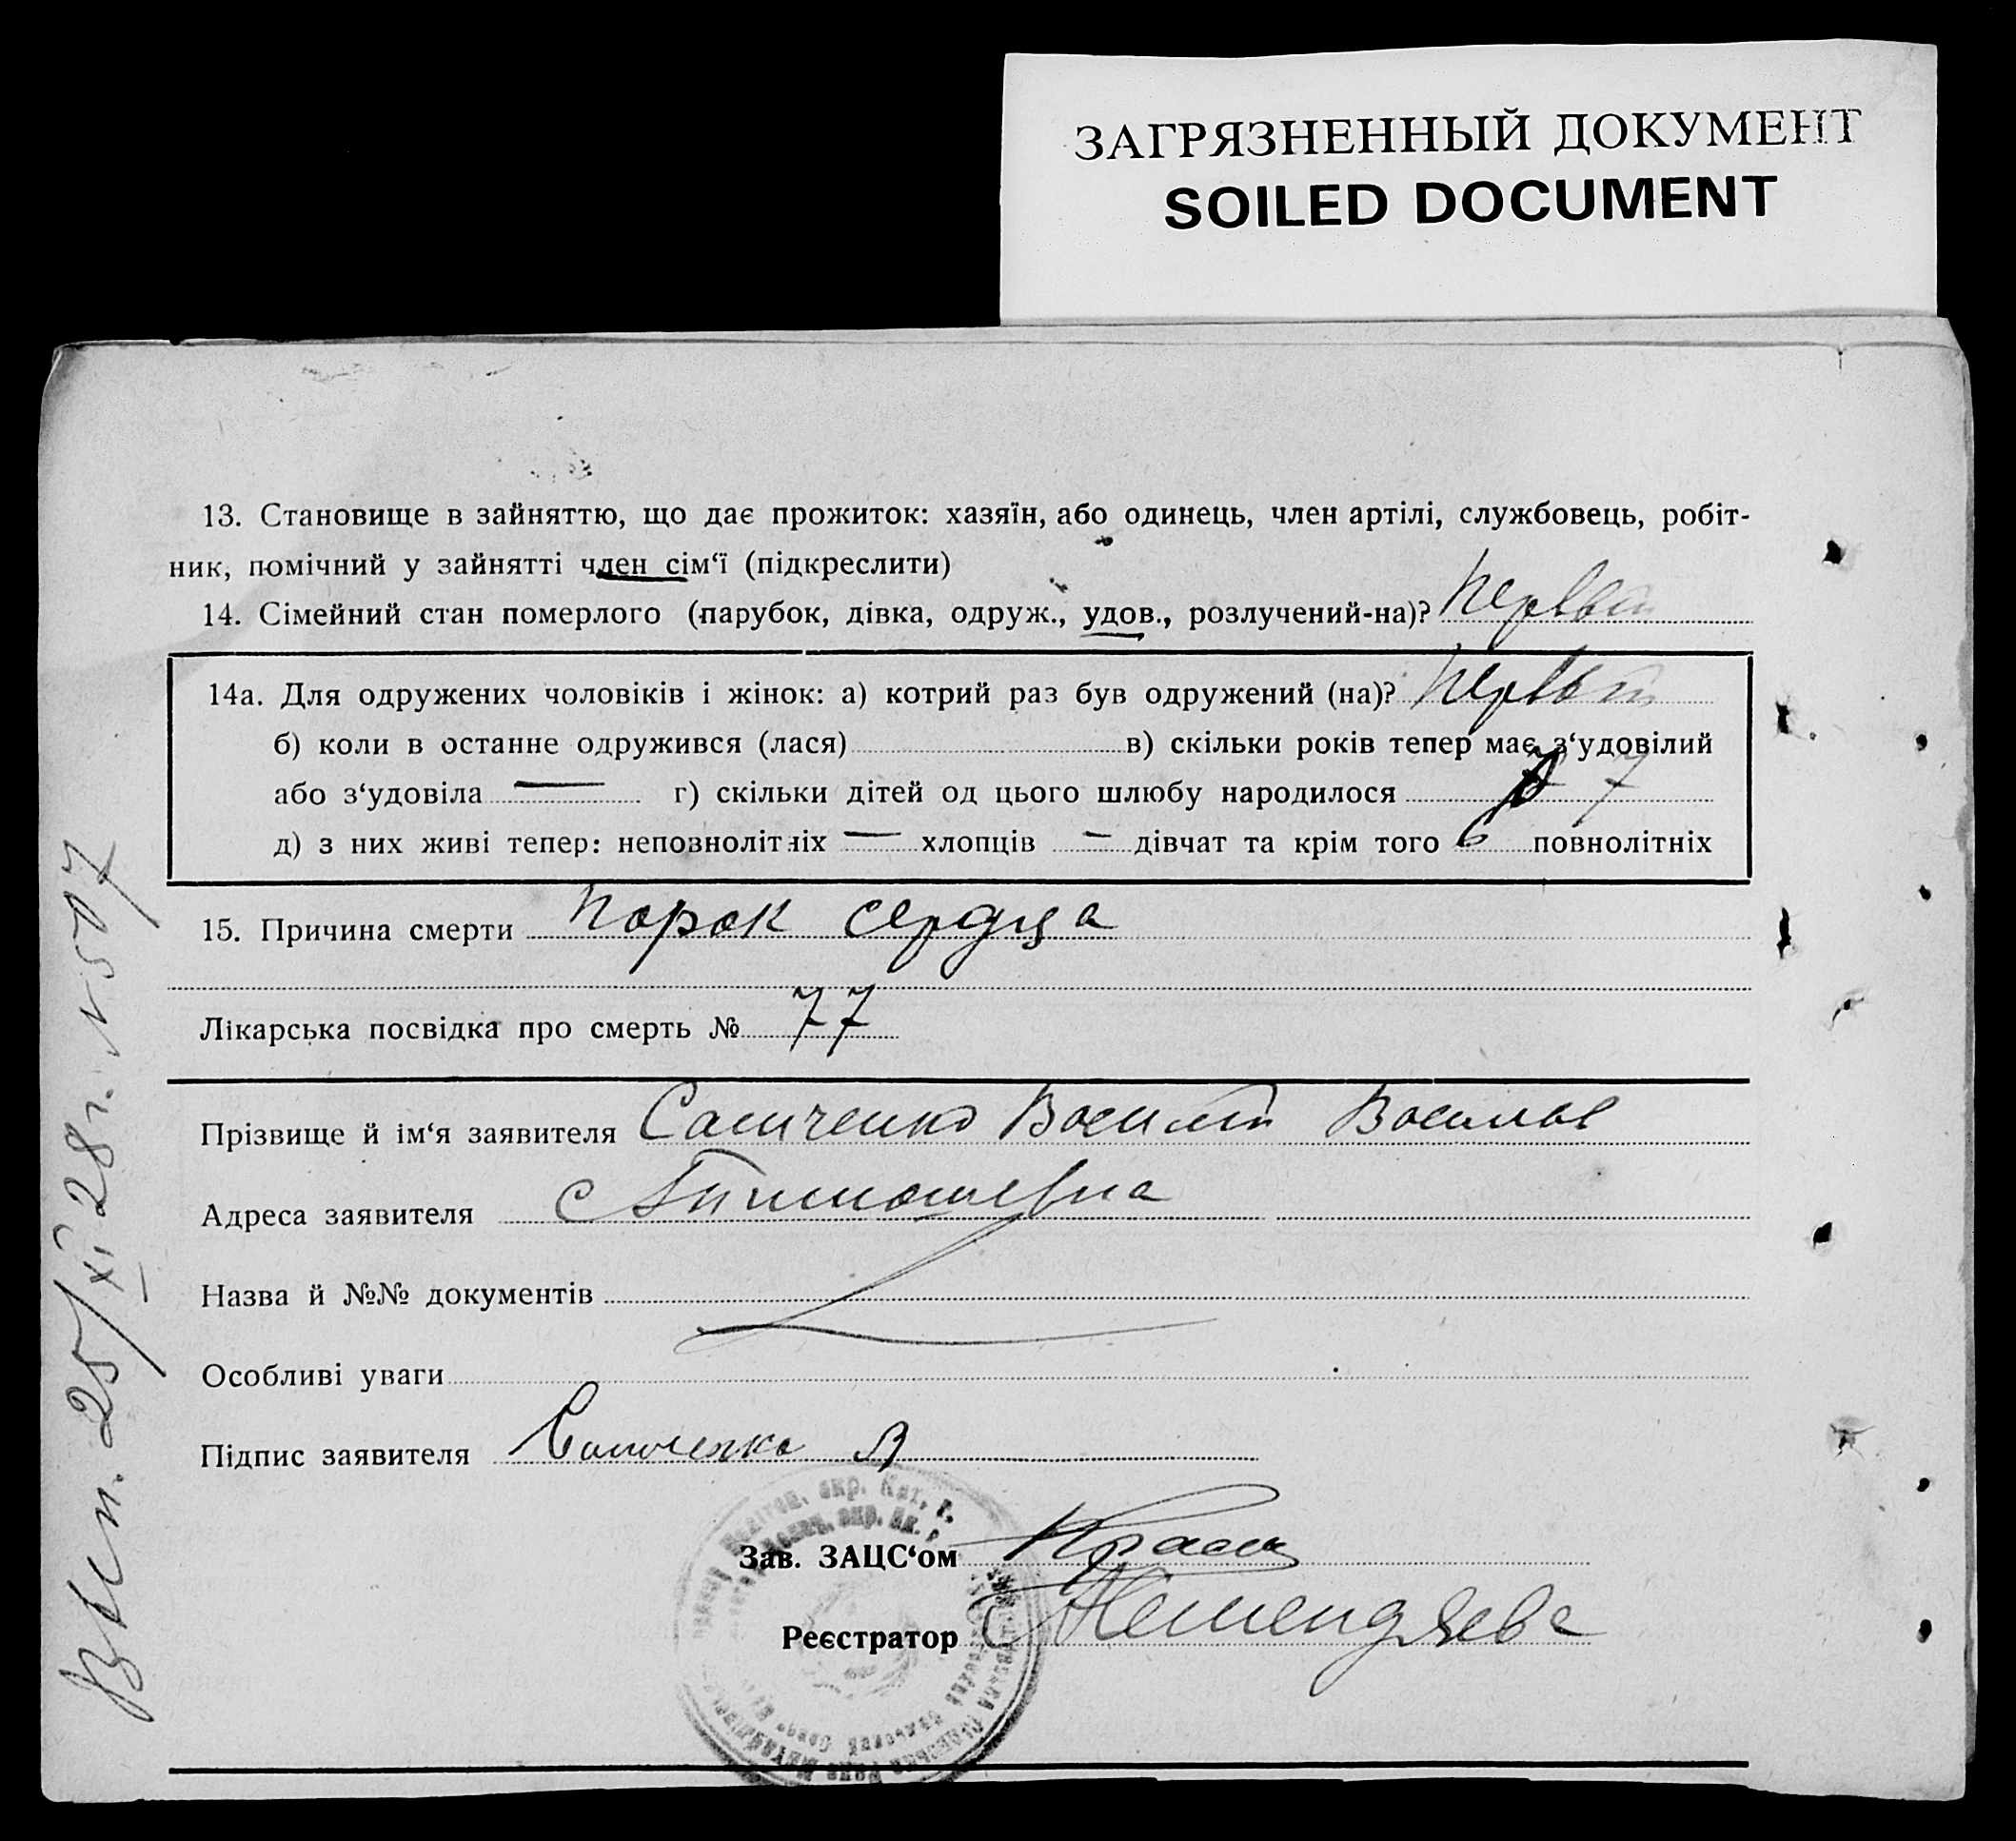 ЗАГРЯЗНЕННЫЙ ДОКУМЕНТ
SOILED DOCUMENT
13. Становище в зайняттю, що дає прожиток: хазяїн, або одинець, член артілі, службовець, робіт-
ник, помічний у зайнятті член сім‘ї (підкреслити)
14. Сімейний стан померлого (парубок, дівка, одруж., удов., розлучений-на)?
14а. Для одружених чоловіків і жінок: а) котрий раз був одружений (на)?
б) коли в останне одружився (лася) в) скільки років тепер має з‘удовілий
або з‘удовіла — г) скільки дітей од цього шлюбу народилося 7
д) з них живі тепер: неповнолітніх — хлопців — дівчат та крім того 6 повнолітніх
15. Причина смерти порок сердца
Лікарська посвідка про смерть № 77
Прізвище й ім‘я заявителя
Адреса заявителя с Тимошевка
Назва й №№ документів
Особливі уваги
Підпис заявителя
Зав. ЗАЦС‘ом
Реєстратор
25/XI 28 г. № 507